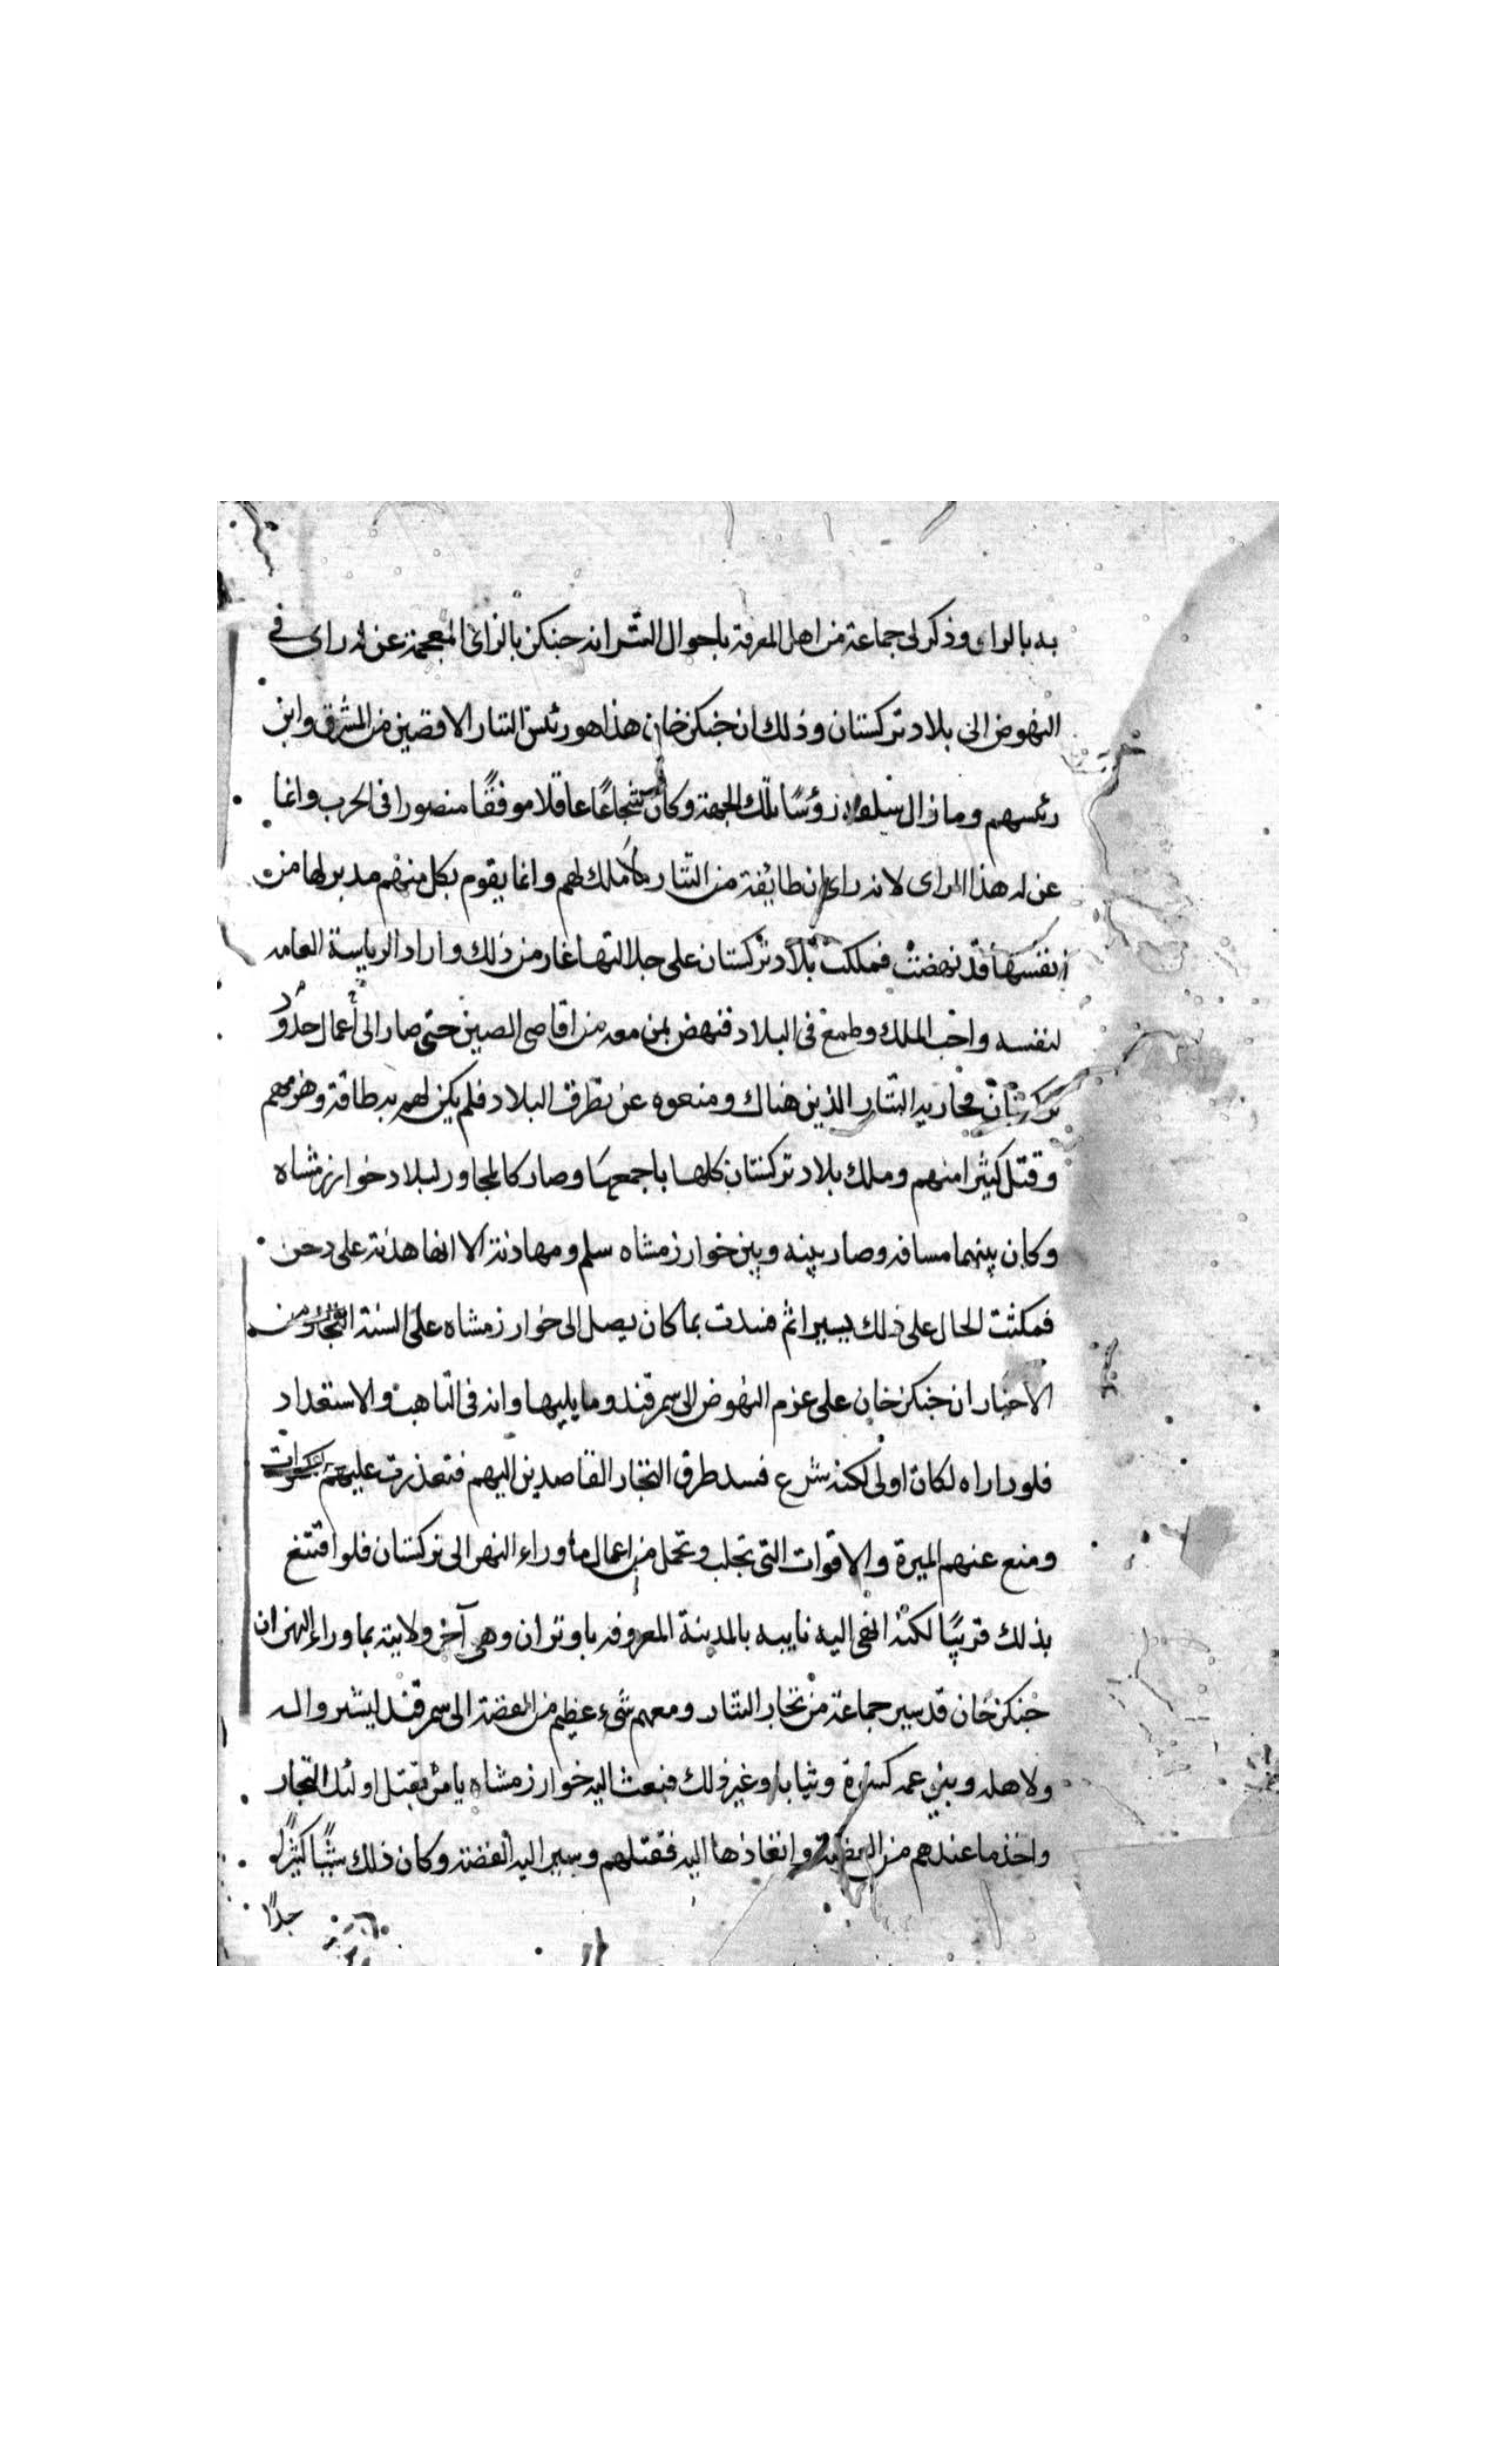 به بالراء وذكر لى جماعة من اهل المعرفة باحوال التتر انه جنكز بالزاى المعجمة عن له راى فى
النهوض الى بلاد تركستان وذلك ان جنكز خان هذا هو رئيس التتار الاقصين من المشرق وابن
رئيسهم وما زال سلفه رؤسًا تلك الجهة وكان شجاعًا عاقلا موفقًا منصورا فى الحرب وانما
عن له هذا الراى لانه راى ان طايفة من التتار لا ملك لهم وانما يقوم بكل منهم مدبر لها من
انفسها قد نهضت فملكت بلاد تركستان على جلالتها غار من ذلك واراد الرياسة العامه
لنفسه واحب الملك وطمع فى البلاد فنهض بمن معه من اقاصى الصين حتى صار الى أعمال حدود
تركستان فحاربه التتار الذين هناك ومنعوه عن تطرق البلاد فلم يكن لهم به طاقة وهزمهم
وقتل كثيرا منهم وملك بلاد تركستان كلها باجمعها وصار كالمجاور لبلاد خوارزمشاه
وكان بينهما مسافه وصار بينه وبين خوارزمشاه سلم ومهادنة الا انها هدنة على دخن
فمكثت الحال على ذلك يسيرا ثم فسدت بما كان يصل الى خوارزمشاه على السنة التجار من
الاخبار ان جنكز خان على عزم النهوض الى سمرقند وما يليها وانه فى التاهب والاستعداد
فلو داراه لكان اولى لكنه شرع فسد طرق التجار القاصدين اليهم فتعذرت عليهم الكسوات
ومنع عنهم الميرة والاقوات التى تجلب وتحمل من اعمال ماوراء النهر الى تركستان فلو اقتنع
بذلك قريبًا لكنه انهى اليه نايبه بالمدينة المعروفه باوتران وهى آخر ولايته بما وراء النهر ان
جنكز خان قد سير جماعة من تجار التتار ومعهم شىء عظيم من الفضة الى سمرقند ليشتروا له
ولاهله وبنى عمه كسوة وثيابا وغير ذلك فبعث اليه خوارزمشاه يامره بقتل اولئك التجار
واخذ ما عندهم من الفضة وانفاذها اليه فقتلهم وسير اليه الفضة وكان ذلك شيًا كثيرًا
جدًا